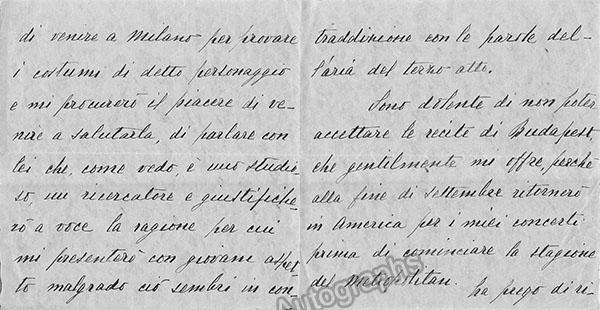 di venire a Milano per provare
i costumi di detto personaggio
e mi procurerò il piacere di ve-
nire a salutarla, di parlare con
lei che, come vedo, è uno studio-
so, un ricercatore e giustifiche-
rò a voce la ragione per cui
mi presenterò con giovani aspet-
to malgrado ciò sembri in con-
traddizione con le parole del-
l'aria del terzo atto.
Sono dolente di non poter
accettare le recite di Budapest,
che gentilmente mi offre, perchè
alla fine di settembre ritornerò
in America per i miei concerti
prima di cominciare la stagione
del Metropolitan.
La prego di ri-
Autographs